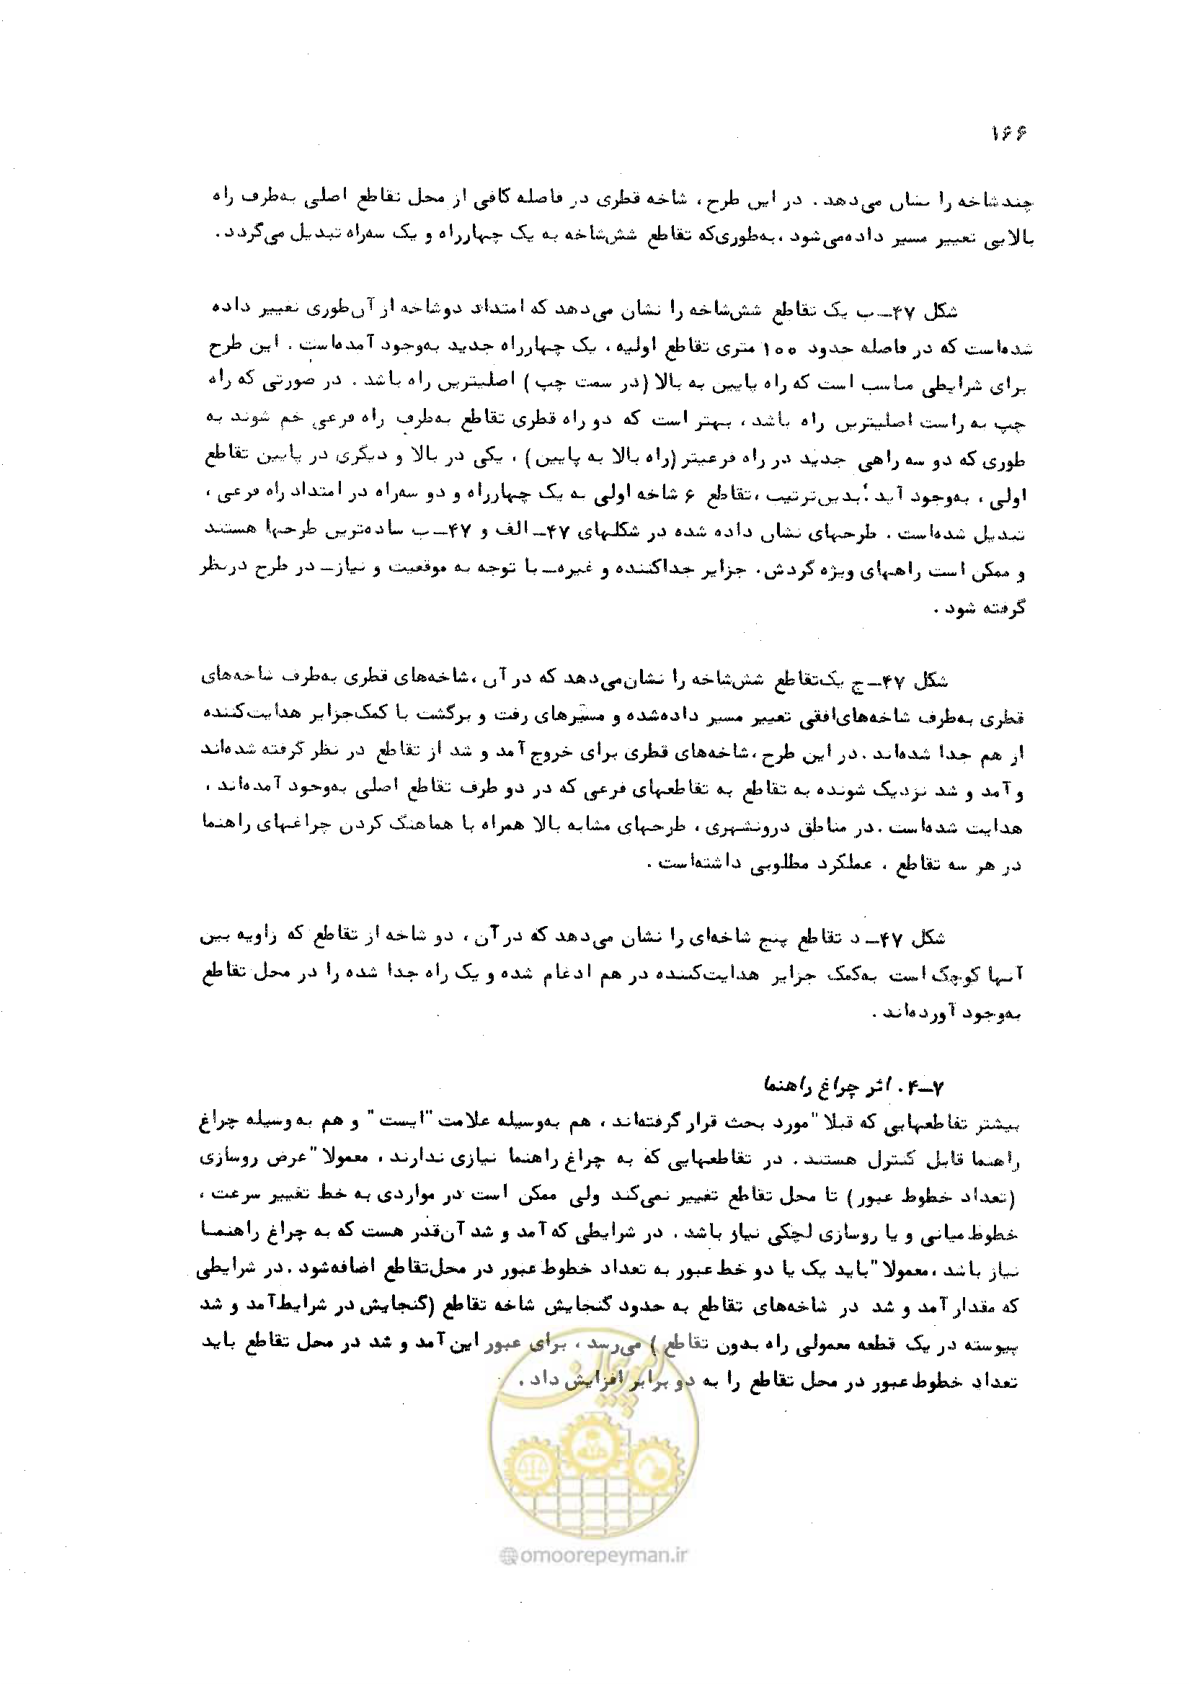 ۱۶۶
چندشاخه را نشان می‌دهد. در این طرح، شاخه قطری در فاصله کافی از محل تقاطع اصلی به‌طرف راه
بالایی تعییر مسیر داده‌می‌شود، به‌طوری‌که تقاطع شش‌شاخه به یک چهارراه و یک سه‌راه تبدیل می‌گردد.
شکل ۴۷ــ ب یک تقاطع شش‌شاخه را نشان می‌دهد که امتداد دوشاخه از آن‌طوری تغییر داده
شده‌است که در فاصله حدود ۱۰۰ متری تقاطع اولیه، یک چهارراه جدید به‌وجود آمده‌است. این طرح
برای شرایطی مناسب است که راه پایین به بالا (در سمت چپ) اصلیترین راه باشد. در صورتی که راه
چپ به راست اصلیترین راه باشد، بهتر است که دو راه قطری تقاطع به‌طرف راه فرعی خم شوند به
طوری که دو سه راهی جدید در راه فرعیتر (راه بالا به پایین)، یکی در بالا و دیگری در پایین تقاطع
اولی، به‌وجود آید؛ بدین‌ترتیب، تقاطع ۶ شاخه اولی به یک چهارراه و دو سه‌راه در امتداد راه فرعی،
تبدیل شده‌است. طرحهای نشان داده شده در شکلهای ۴۷ــ الف و ۴۷ــ ب ساده‌ترین طرحها هستند
و ممکن است راههای ویژه گردش. جزایر جداکننده و غیره‌ــ با توجه به موقعیت و نیازــ در طرح درنظر
گرفته شود.
شکل ۴۷ــ ج یک‌تقاطع شش‌شاخه را نشان‌می‌دهد که در آن، شاخه‌های قطری به‌طرف شاخه‌های
قطری به‌طرف شاخه‌های‌افقی تعییر مسیر داده‌شده و مسیرهای رفت و برگشت با کمک‌جزایر هدایت‌کننده
از هم جدا شده‌اند. در این طرح، شاخه‌های قطری برای خروج آمد و شد از تقاطع در نظر گرفته شده‌اند
و آمد و شد نزدیک شونده به تقاطع به تقاطعهای فرعی که در دو طرف تقاطع اصلی به‌وجود آمده‌اند،
هدایت شده‌است. در مناطق درونشهری، طرحهای مشابه بالا همراه با هماهنگ کردن چراغهای راهنما
در هر سه تقاطع، عملکرد مطلوبی داشته‌است.
شکل ۴۷ــ د تقاطع پنج شاخه‌ای را نشان می‌دهد که در آن، دو شاخه از تقاطع که زاویه بین
آنها کوچک است به‌کمک جزایر هدایت‌کننده در هم ادغام شده و یک راه جدا شده را در محل تقاطع
به‌وجود آورده‌اند.
۷ــ۴. اثر چراغ راهنما
بیشتر تقاطعهایی که قبلا" مورد بحث قرار گرفته‌اند، هم به‌وسیله علامت "ایست" و هم به وسیله چراغ
راهنما قابل کنترل هستند. در تقاطعهایی که به چراغ راهنما نیازی ندارند، معمولا" عرض روسازی
(تعداد خطوط عبور) تا محل تقاطع تغییر نمی‌کند ولی ممکن است در مواردی به خط تغییر سرعت،
خطوط میانی و یا روسازی لچکی نیاز باشد. در شرایطی که آمد و شد آن‌قدر هست که به چراغ راهنما
نیاز باشد، معمولا" باید یک یا دو خط عبور به تعداد خطوط عبور در محل‌تقاطع اضافه‌شود. در شرایطی
که مقدار آمد و شد در شاخه‌های تقاطع به حدود گنجایش شاخه تقاطع (گنجایش در شرایط آمد و شد
پیوسته در یک قطعه معمولی راه بدون تقاطع) می‌رسد، برای عبور این آمد و شد در محل تقاطع باید
تعداد خطوط عبور در محل تقاطع را به دو برابر افزایش داد.
امور پیمان
@omoorepeyman.ir